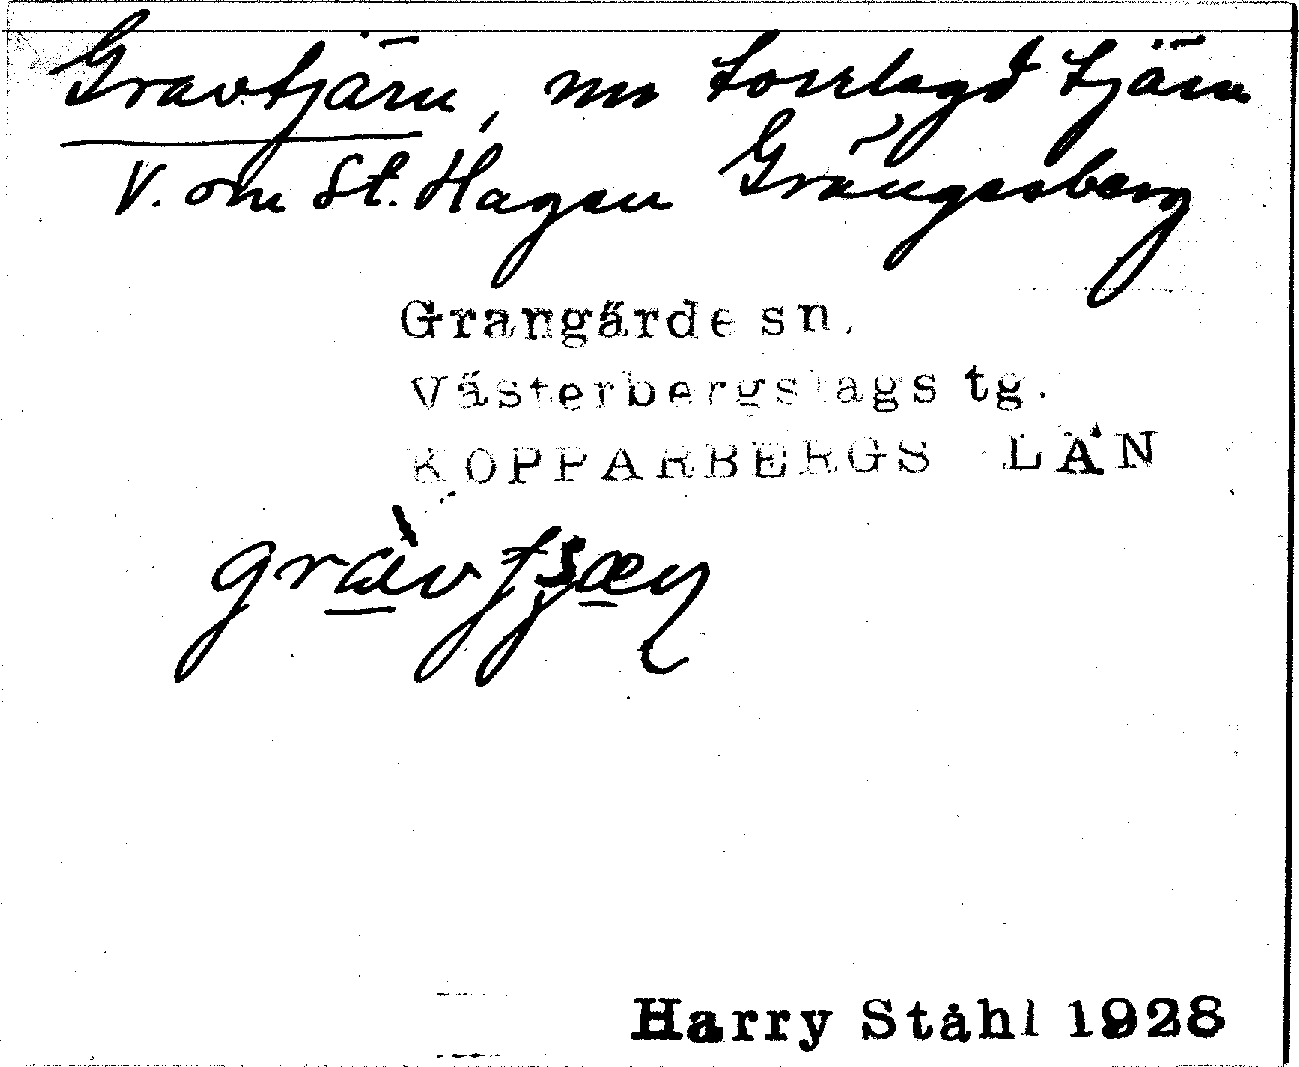 Gravtjärn, nu torrlagd tjärn
V. om St. Hagen Grängesberg
Grangärde sn.
Västerbergslags tg.
KOPPARBERGS LÄN
Harry Ståhl 1928